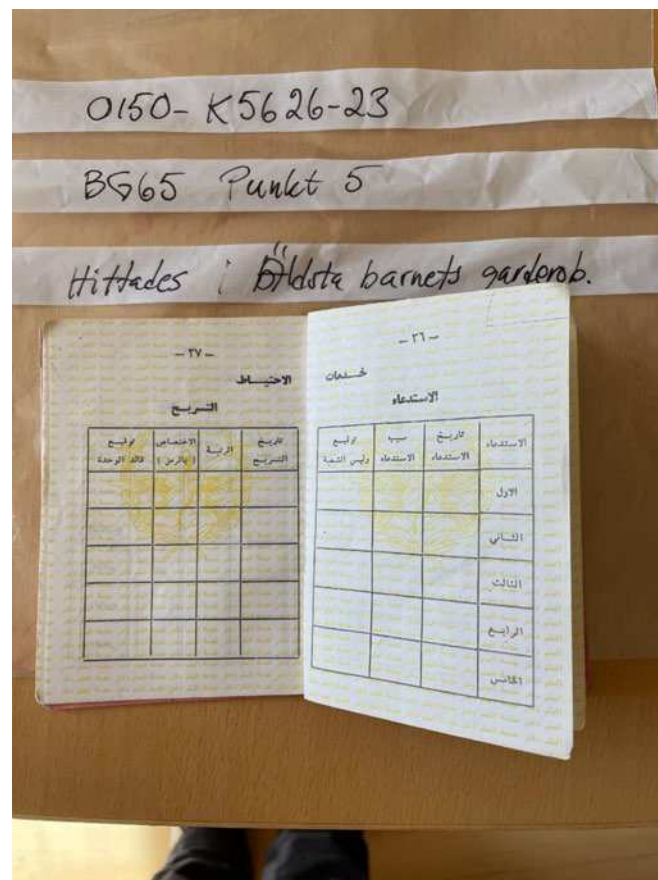 0150-K5626-23
BG65 Punkt 5
Hittades i Äldsta barnets garderob.
— ٣٦ —
خــدمات
الاستدعاء
الاستدعاء تاريخ الاستدعاء سبب الاستدعاء توقيع رئيس الشعبة
الاول
الثاني
الثالث
الرابع
الخامس
— ٣٧ —
الاحتيــاط
التسريح
تاريخ التسريح الرتبة الاختصاص ( بالرمز ) توقيع قائد الوحدة